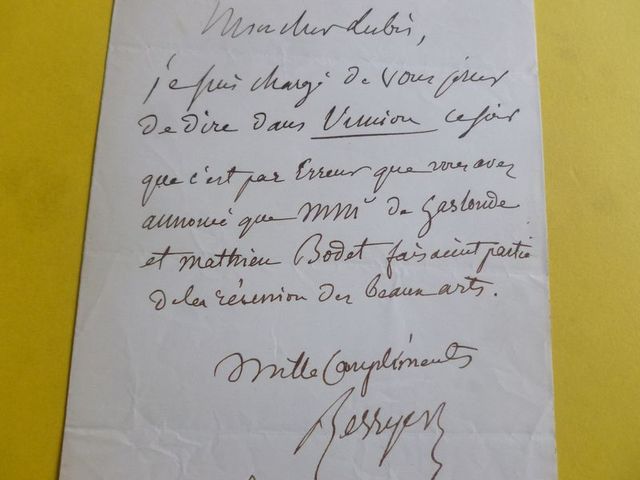 Mon cher Lubis,
je suis chargé de vous prier
de dire dans l'Union ce soir
que c'est par Erreur que vous avez
annoncé que MM. de Gaslonde
et mathieu Bodet faisaient partie
de la réunion des beaux arts.
Mille Compliments
Berryer